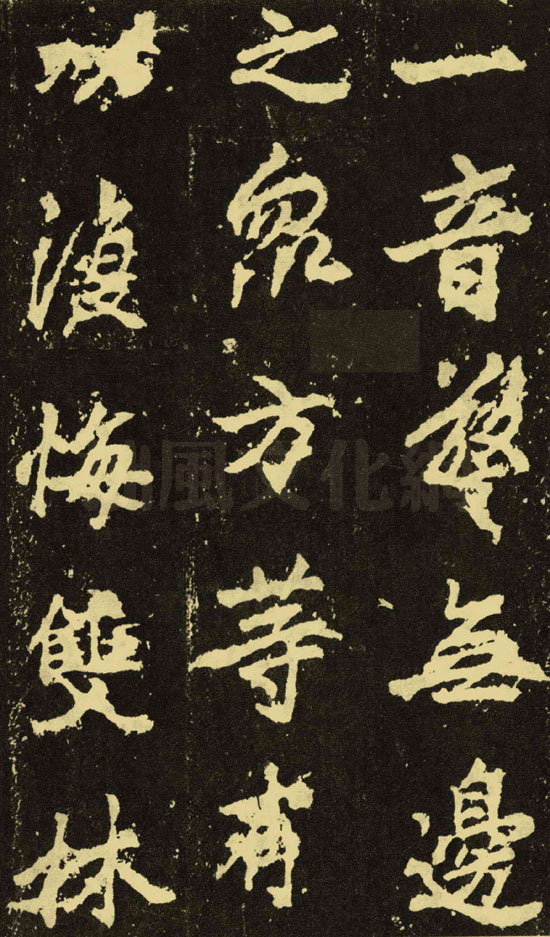 一音無邊
之眾方等有
功悔雙林
風文化網